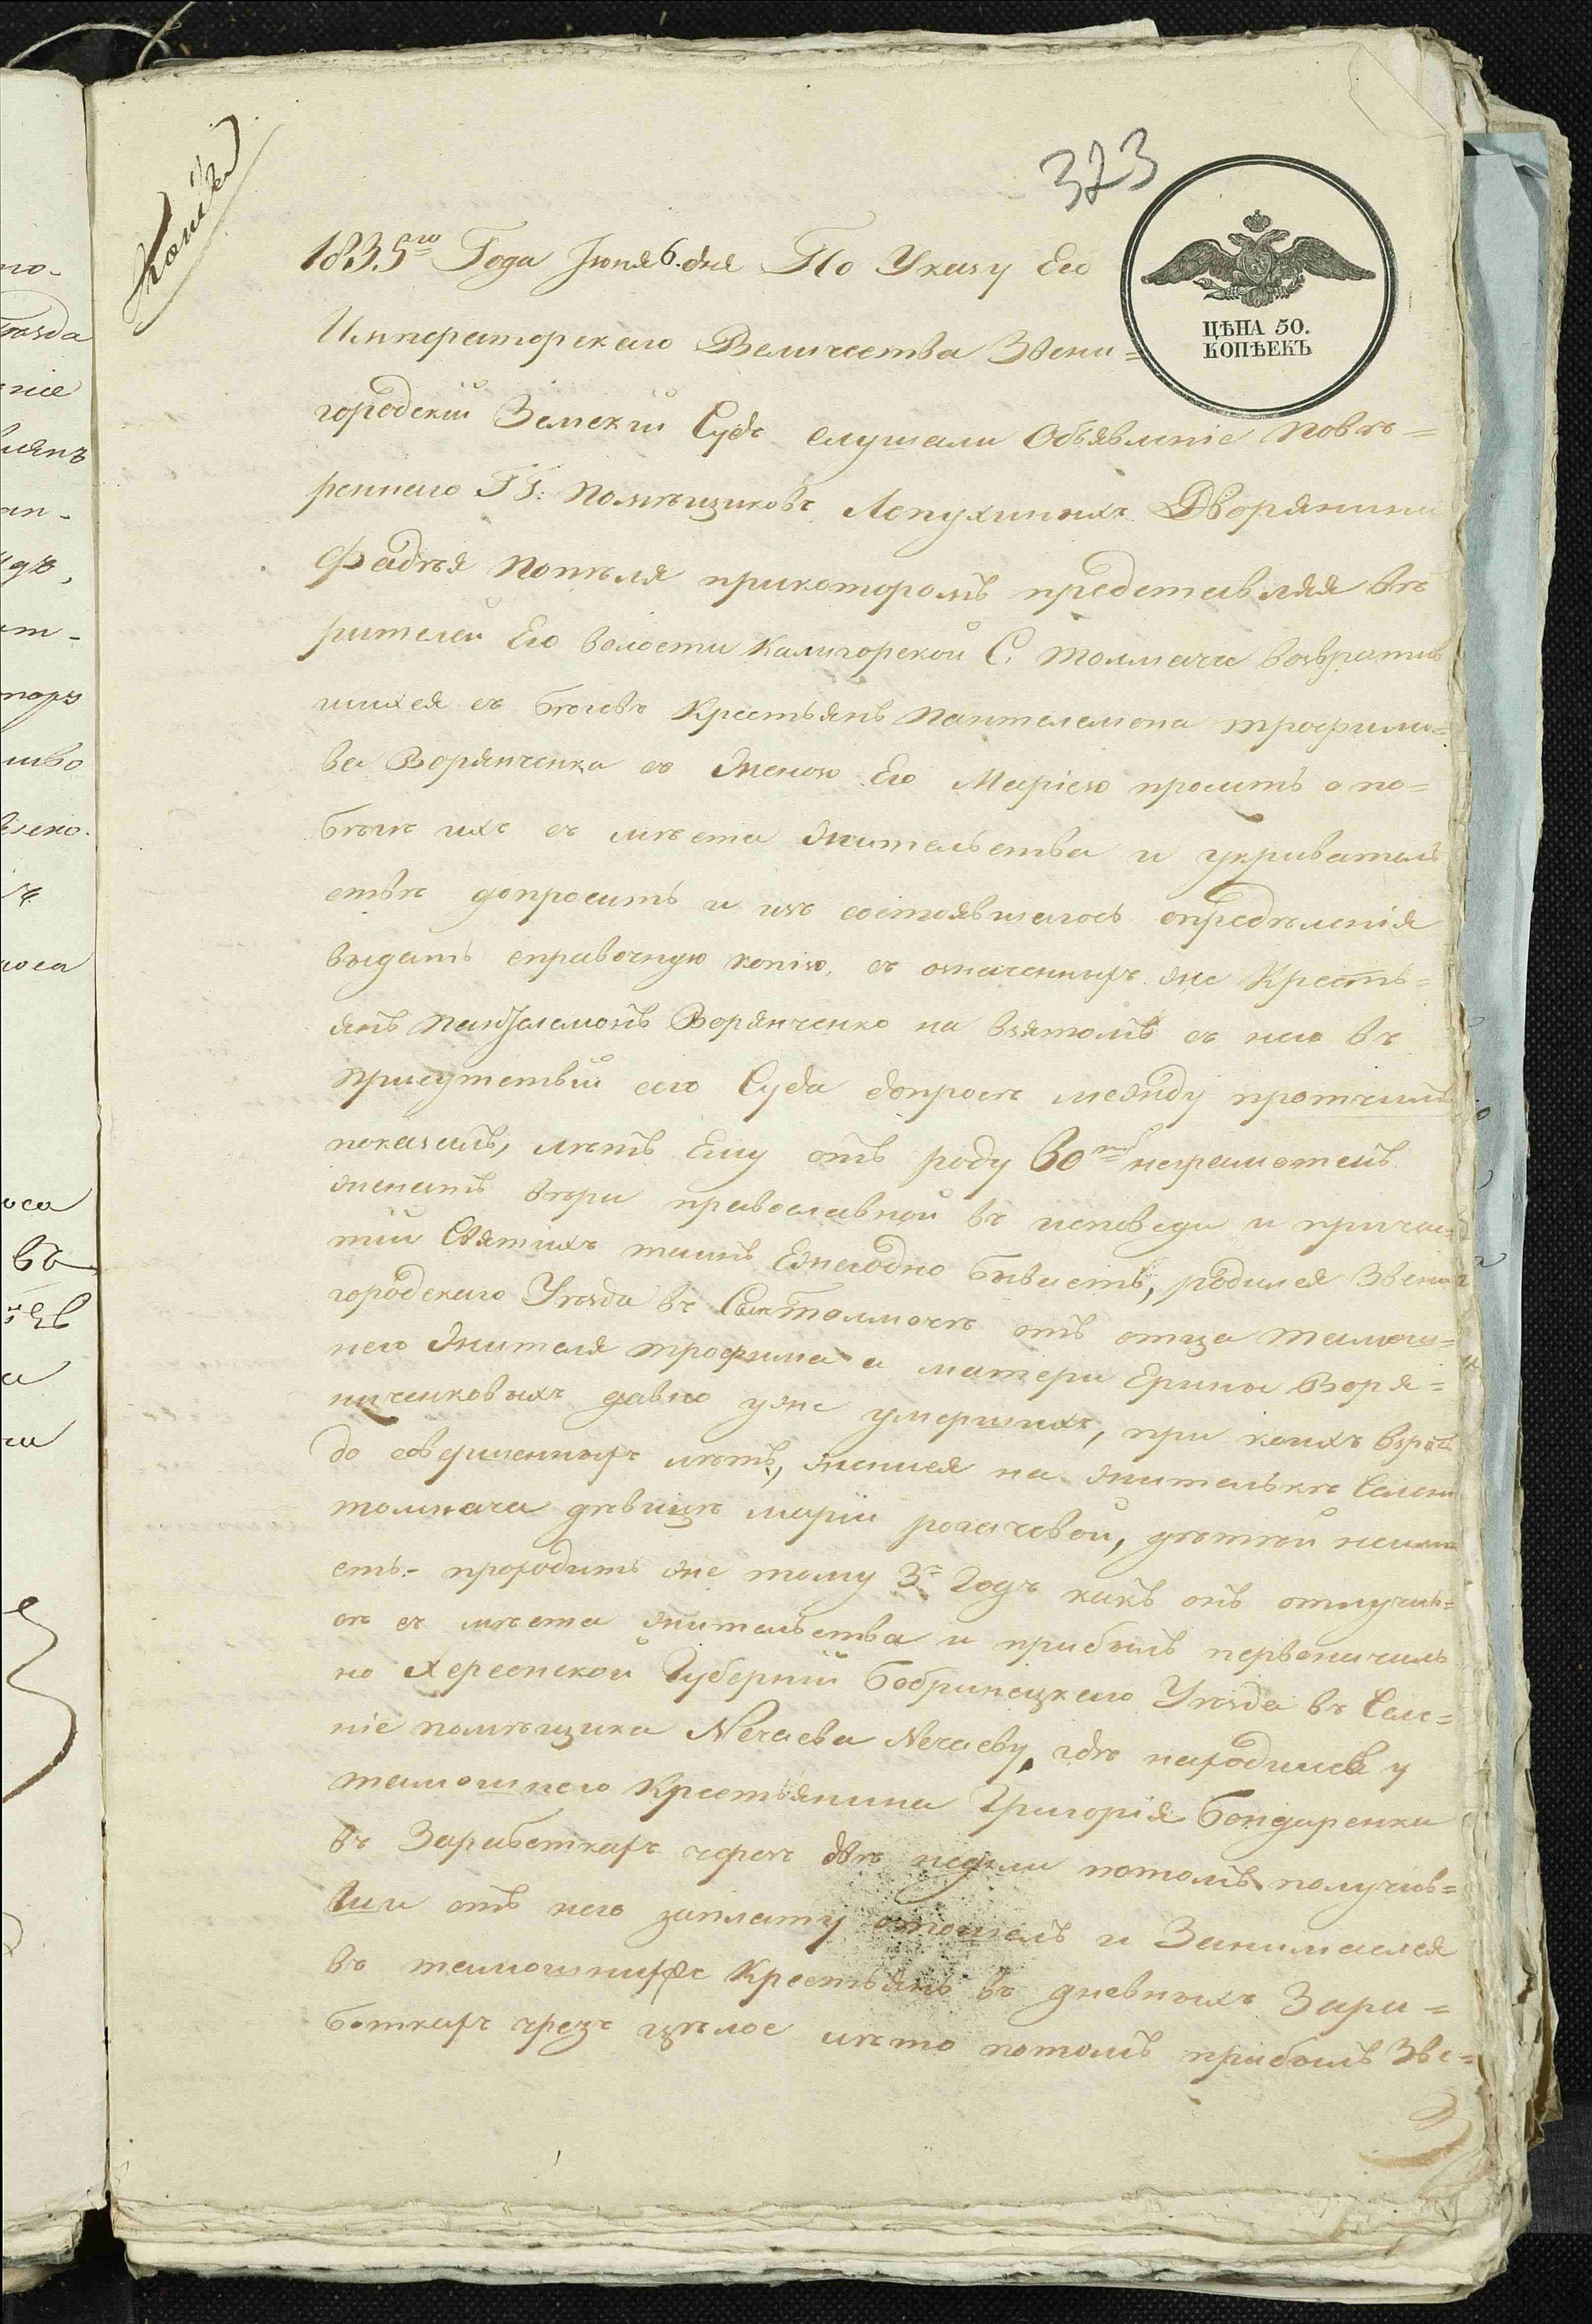 Копія
323
ЦѢНА 50.
КОПѢЕКЪ
1835го Года Іюня 6. дня По Указу Его
Императорскаго Величества Звени=
городскій Земскій Судъ слушали Объявленіе повѣ=
реннаго ГГ: помѣщиковъ Лопухиныхъ Дворянина
Фадѣя Попѣля прикоторомъ представляя вѣ
рителей Его волости Калигорской С. толмача возвратив
шихся съ бѣговъ Крестьянъ пантелемона трофимо=
ва Ворянченка съ Женою Его Маріею проситъ о по=
бѣгѣ ихъ съ мѣста Жительства и укриватель
ствѣ допросить и изъ состоявшагось опредѣленія
выдать справочную копію, съ означенныхъ же Кресть=
янъ Пантелемонъ Ворянченко на взятомъ съ него въ
присутствіи сего Суда допросѣ между протчимъ
показалъ, лѣтъ Ему отъ роду 60ть неграмотенъ
женатъ вѣри православной въ исповеди и причас
тіи Святихъ таинъ Ежегодно бываетъ, родился Звени
городскаго Уѣзда въ Сели Толмочѣ отъ отца тамош=
него жителя трофима а матери Ерины Воря=
ниченковыхъ давно уже умершихъ, при коихъ взросъ
до совершенныхъ лѣтъ, женился на жителькѣ Села
толмача дѣвицѣ маріи рогачовой, дѣтей неимѣ
етъ - проходитъ же тому 3й Годъ какъ онъ отлучив=
съ мѣста жительства и прибылъ первоначаль
но Херсонской Губерніи Бобринецкаго Уѣзда въ Селе=
ніе помѣщика Нечаева Нечаеву, гдѣ находился у
тамошнего Крестьянина Григорія Бондаренка
въ Заработкахъ чрезъ двѣ недѣли потомъ получив=
ши отъ него заплату отошелъ и Занимался
въ тамошнихъ Крестьянъ въ дневныхъ Зара=
боткахъ чрезъ цѣлое лѣто потомъ прибылъ Зве=